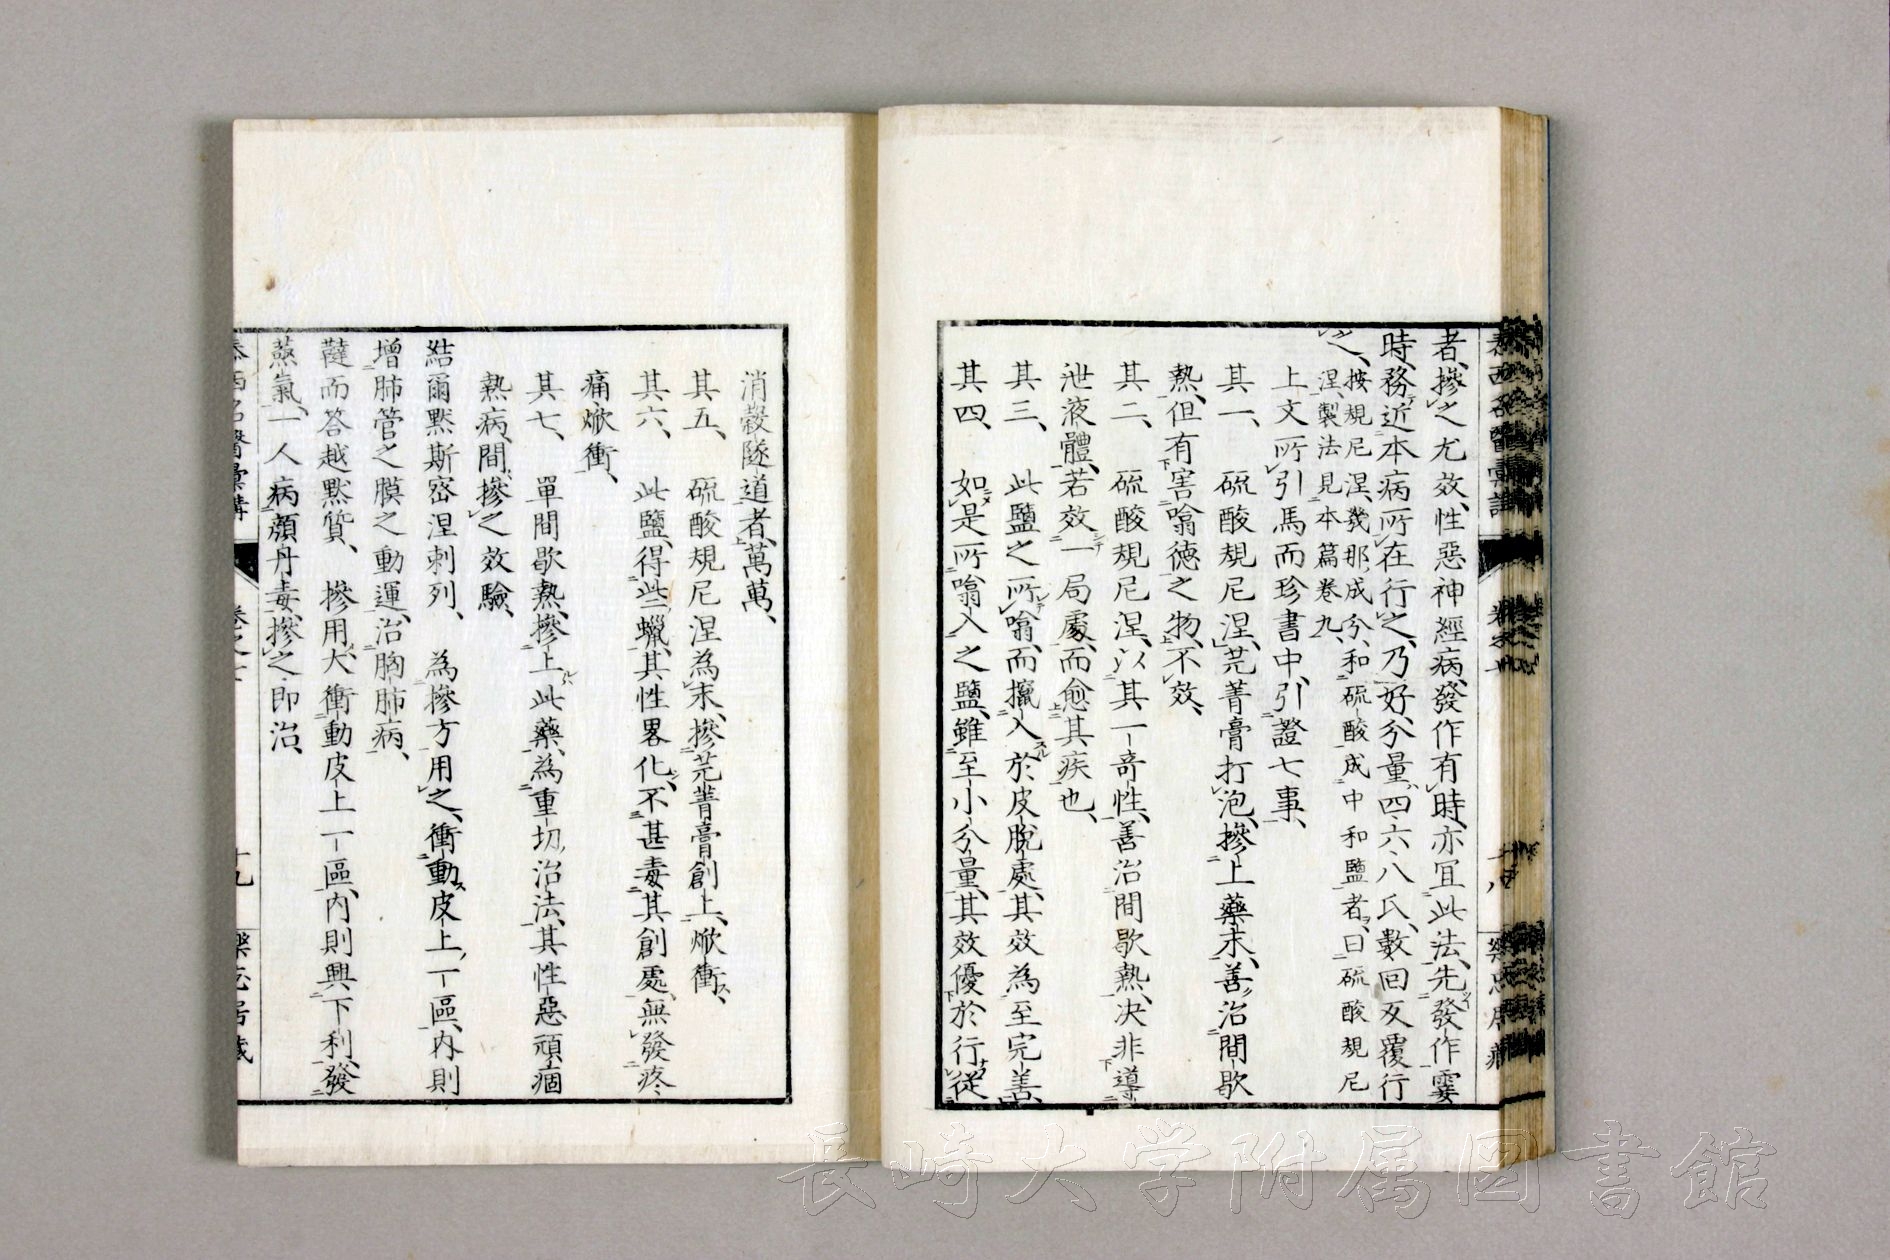 者、摻之尤效、性惡神經病、發作有時、亦冝此法、先發作霎
時、務近本病所在行之、乃好、分量、四六八氏、數回反覆行
之、按規尼涅、幾那、成分、和硫酸成中和鹽者、曰硫酸規尼
涅、製法見本篇卷九、
上文所引馬而珍書中、引證七事、
其一、硫酸規尼涅、芫菁膏打泡、摻上藥末、善治間歇
熱、但有害噏徳之物、不效、
其二、硫酸規尼涅、以其一奇性、善治間歇熱、决非導
泄液體、若效一局處、而愈其疾也、
其三、此鹽之所噏、而擸入於皮脫處、其效為至完善、
其四、如是所噏入之鹽、雖至小分量、其效優於行従
消穀隧道者、萬萬、
其五、硫酸規尼涅為末、摻芫菁膏創上、焮衝、
其六、此鹽、得些蠟、其性畧化、不甚毒、其創處、無發疼
痛焮衝、
其七、單間歇熱、摻上此藥、為重切治法、其性惡頑痼
熱病、間摻之效驗、
結爾黙斯宻涅刺列、為摻方用之、衝動皮上一區、内則
增肺管之膜之動運、治胸肺病、
韃而答越黙貨、摻用、大衝動皮上一區、内則興下利、發
蒸氣、一人病顔丹毒、摻之即治、
泰西名醫彙講
十九
長崎大学附属図書館